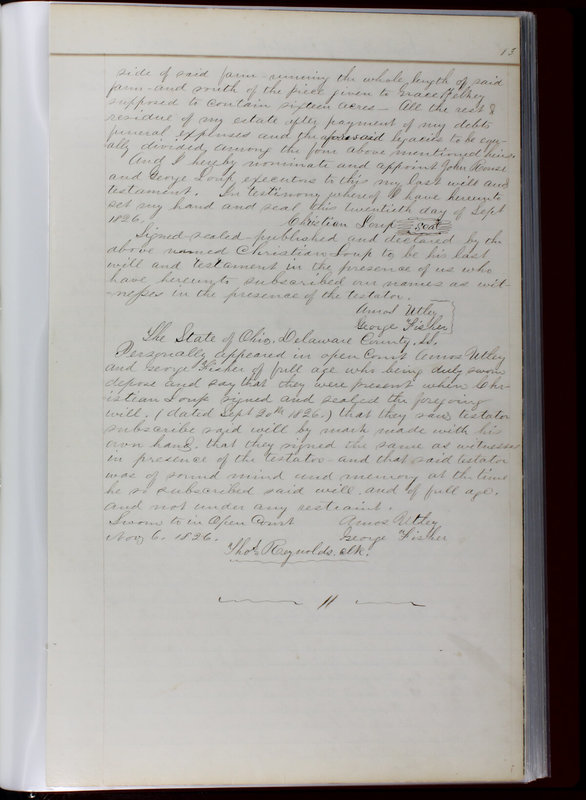 13
side of said farm - running the whole length of said
farm - and south of the piece given to Grace Kelkey
supposed to contain sixteen acres - All the rest &
residue of my estate after payment of my debts
funeral expenses and the aforesaid legacies to be equ-
ally divided among the four above mentioned heirs.
And I hereby nominate and appoint John Rouse
and George Loup executors to this my last will and
testament. In testimony whereof I have hereunto
set my hand and seal this twentieth day of Sept
1826. Christian Loup seal
Signed - sealed - published and declared by the
above named Christian Loup to be his last
will and testament in the presence of us who
have hereunto subscribed our names as wit-
-nesses in the presence of the testator.
Amos Utley
George Fisher
The State of Ohio, Delaware County, ss.
Personally appeared in open Court Amos Utley
and George Fisher of full age who being duly sworn
depose and say that they were present when Chr-
istian Loup signed and sealed the foregoing
will. (dated Sept 20th 1826.) that they saw testator
subscribe said will by mark made with his
own hand. that they signed the same as witnesses
in presence of the testator - and that said testator
was of sound mind and memory at the time
he so subscribed said will. and of full age.
and not under any restraint.
Sworn to in Open Court Amos Utley
Nov 6. 1826. George Fisher
Thos Reynolds. clk.